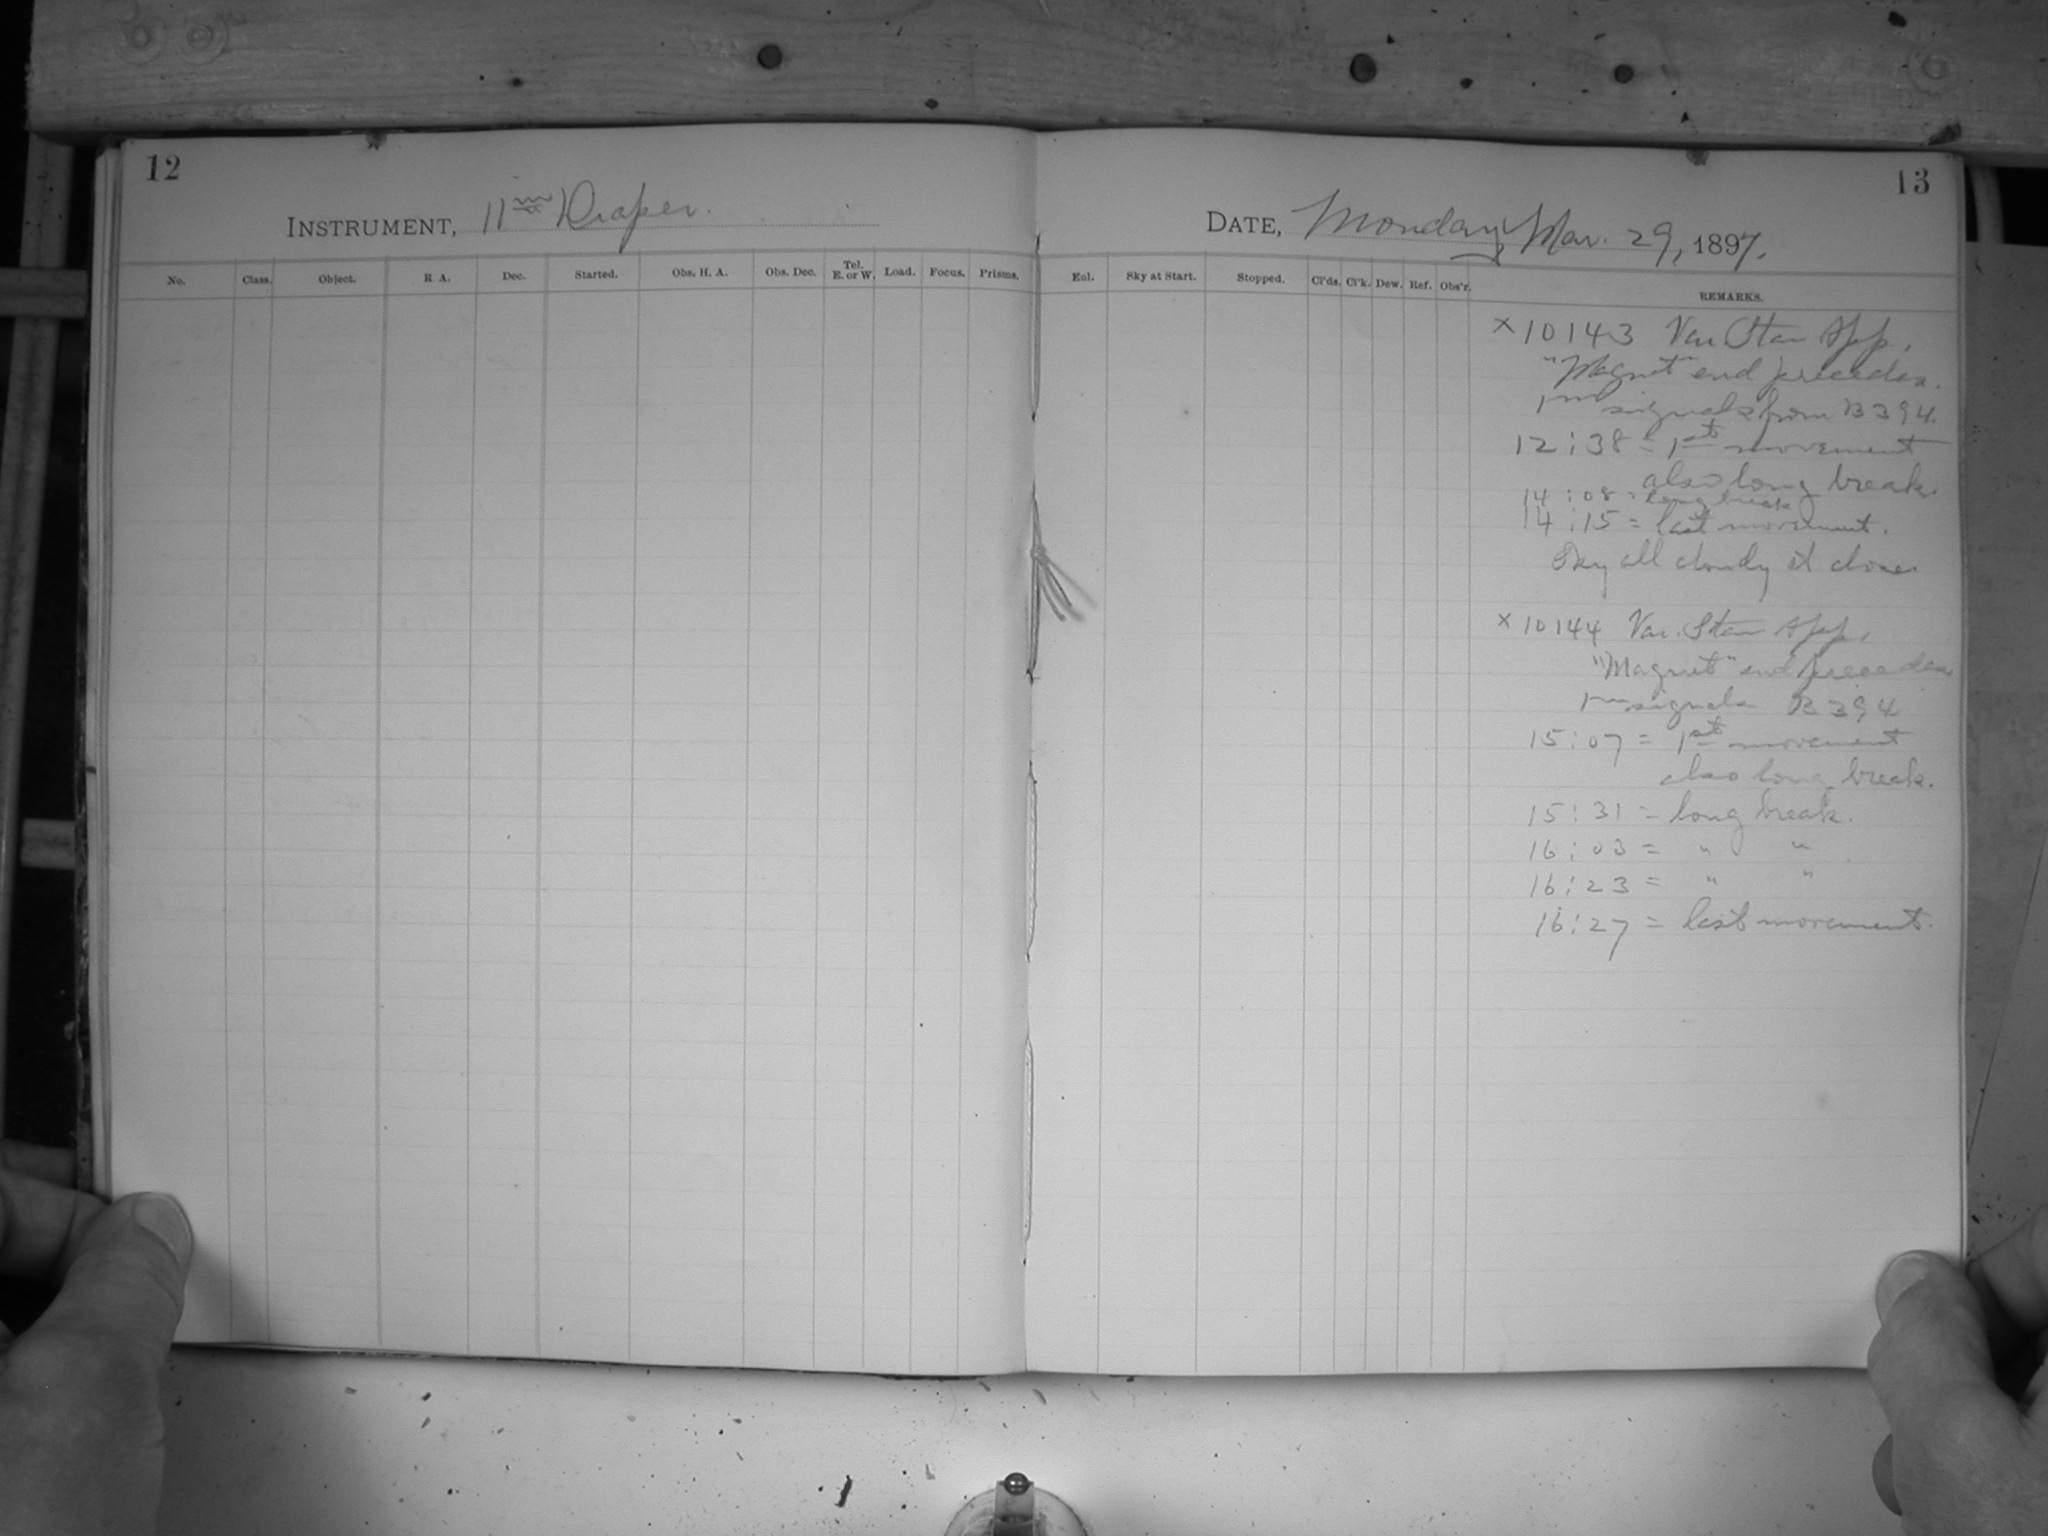 12
INSTRUMENT, 11 in Draper.
No. Class. Object. R A. Dec. Started. Obs. H. A. Obs. Dec. Tel. E. or W. Load. Focus. Prisms.
13
DATE, Monday, Mar. 29, 1897.
Eol. Sky at Start. Stopped. Cl'ds. Cl'k. Dew. Ref. Obs'r. REMARKS.
x 10143 Var. Star App.
"Magnet" end precedes.
1m signals from B394.
12:38 = 1st movement
also long break.
14:08 = long break
14:15 = last movement.
Sky all cloudy at close
x 10144 Var. Star App.
"Magnet" end precedes
1m signals B394
15:07 = 1st movement
also long break.
15:31 = long break.
16:03 = " "
16:23 = " "
16:27 = last movement.